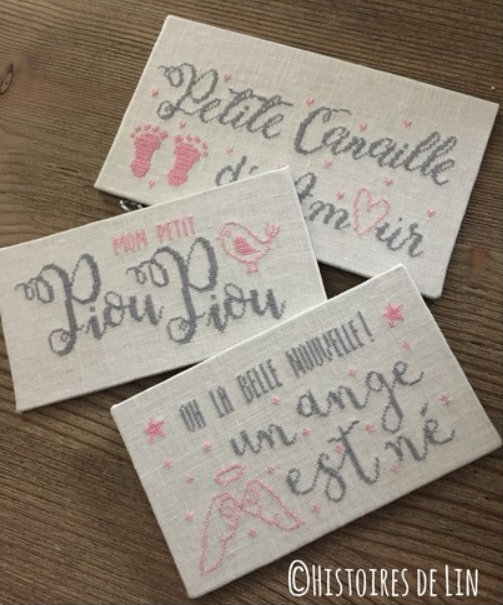 Petite Canaille
d'Amour
MON PETIT
Piou Piou
OH LA BELLE NOUVELLE!
un ange
est né
©HISTOIRES DE LIN